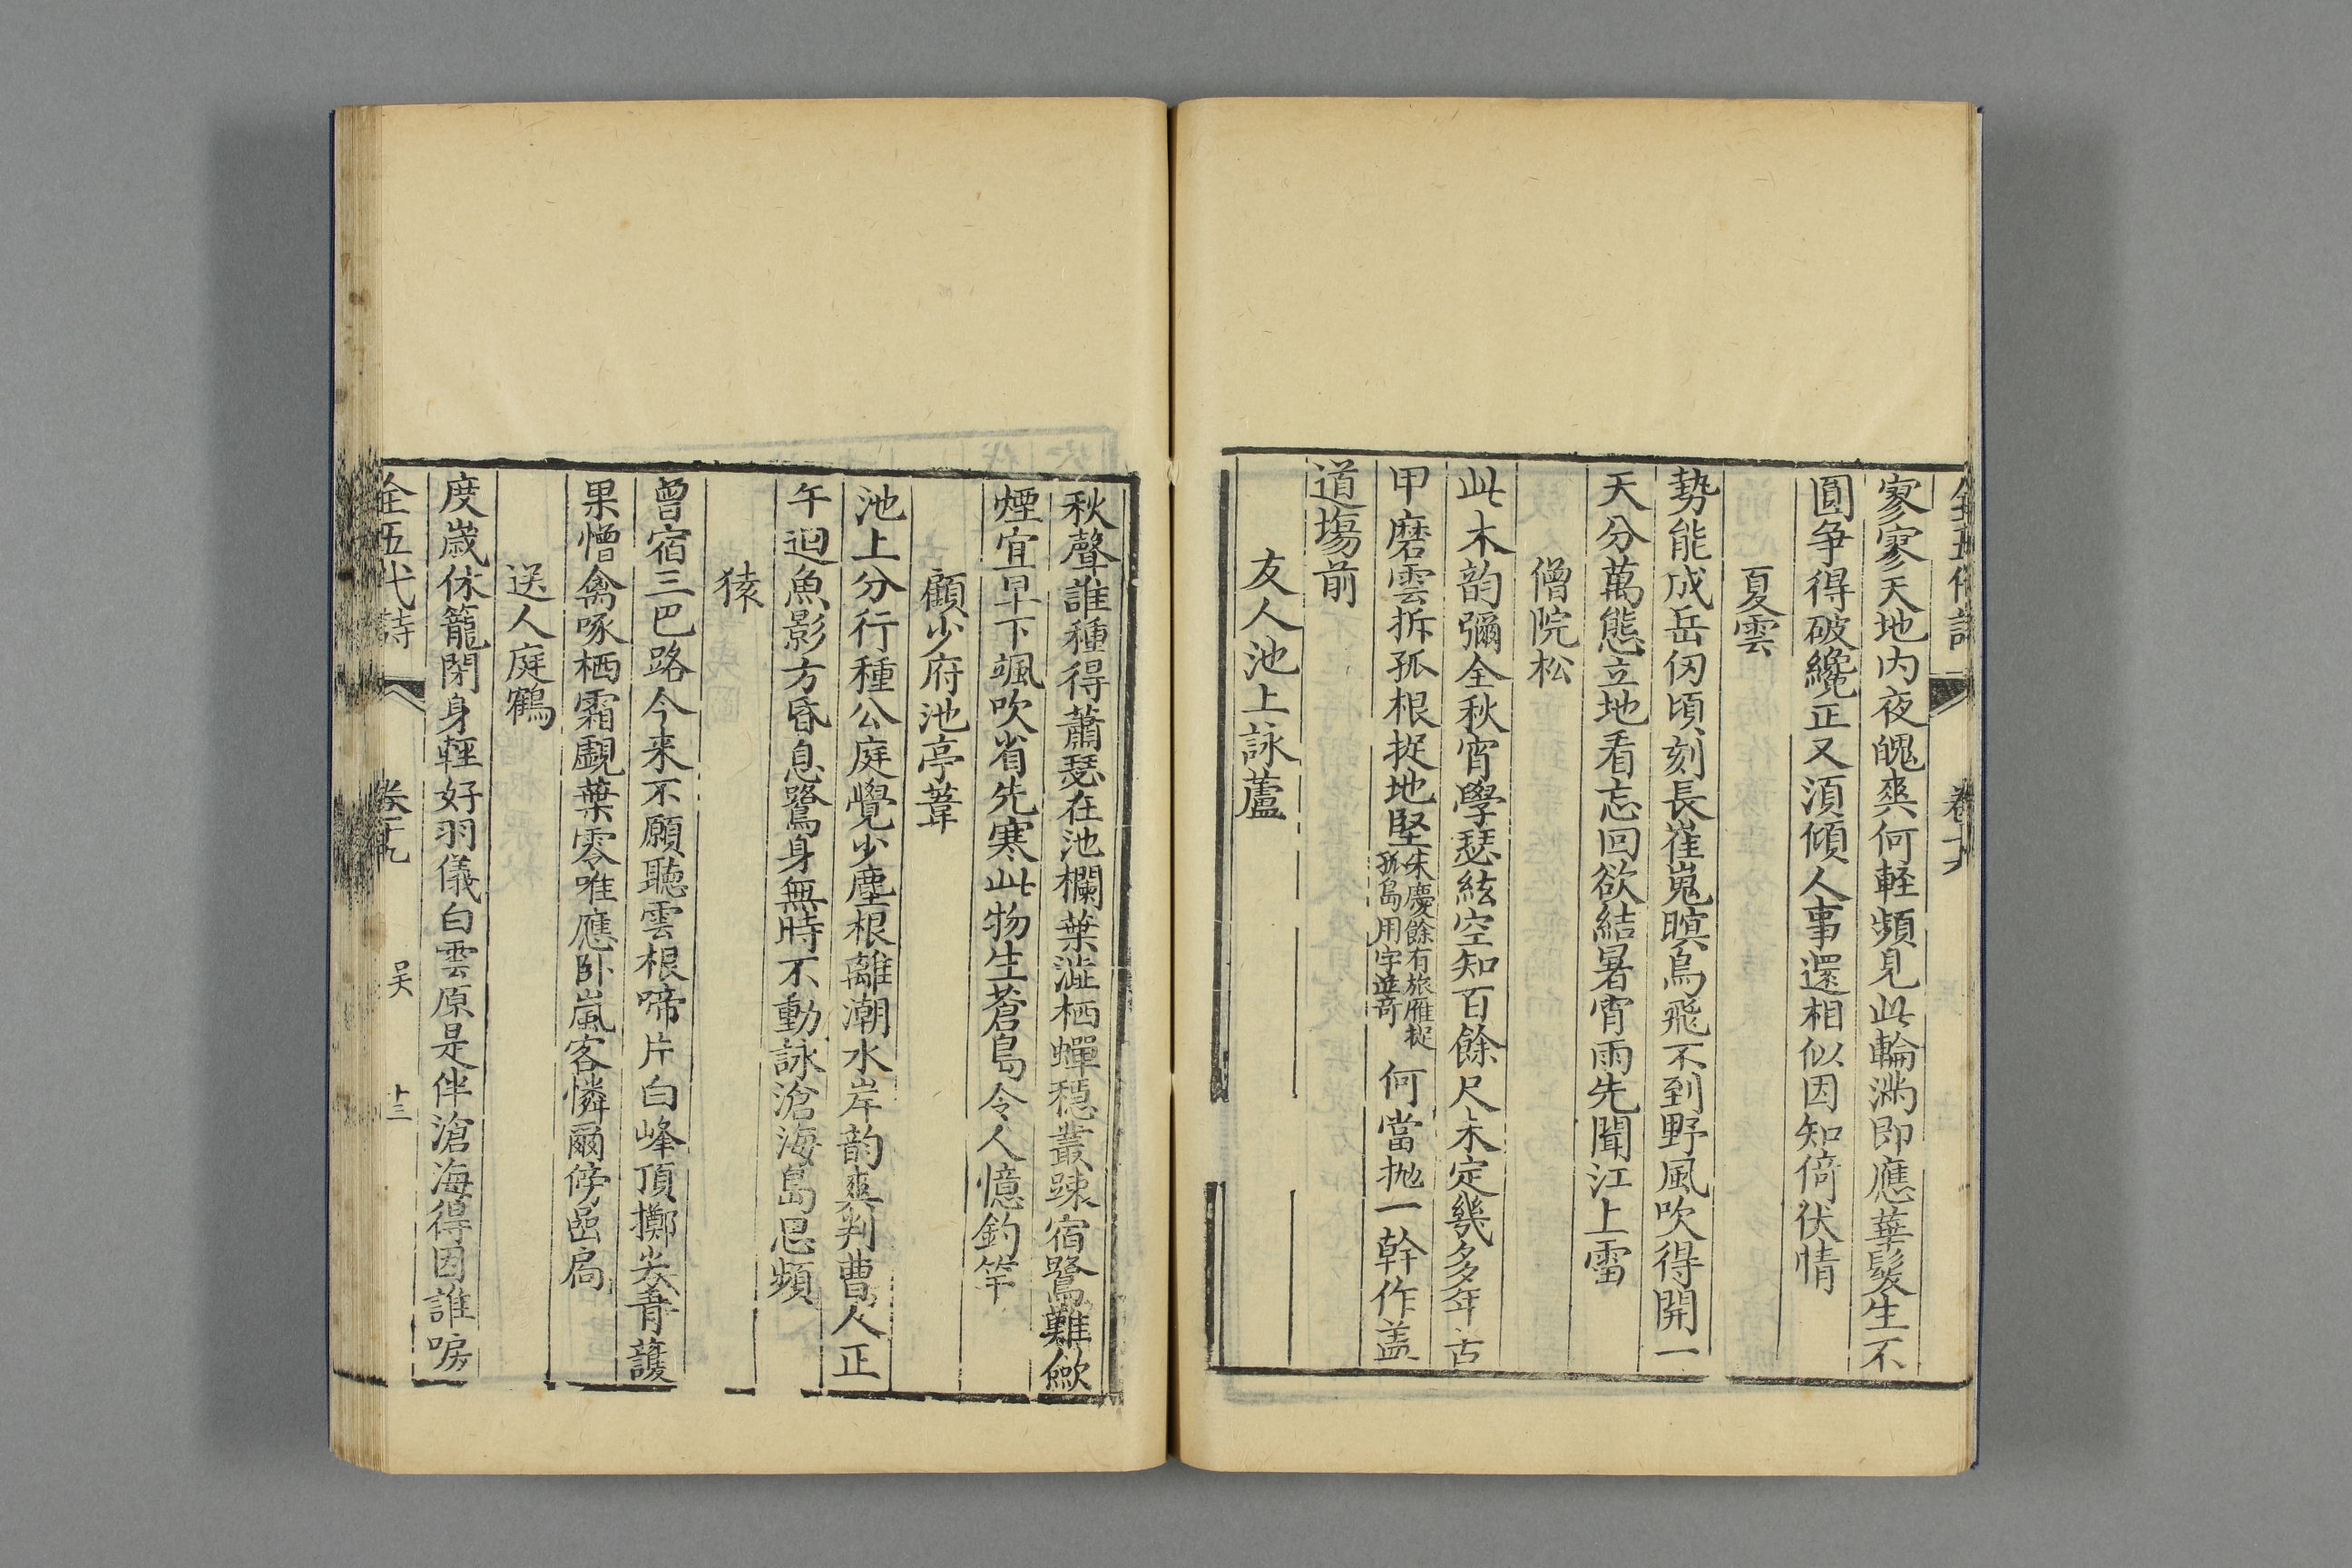 全五代詩 卷十九
寥寥天地内夜魄爽何軽頻見此輪滿即應華髪生不
圓争得破纔正又湏傾人事還相似因知倚伏情
夏雲
勢能成岳仞頃刻長崔嵬暝鳥飛不到野風吹得開一
天分萬態立地看忘回欲結暑宵雨先聞江上雷
僧院松
此木韵彌全秋宵學瑟絃空知百餘尺未定幾多年古
甲磨雲拆孤根捉地堅朱慶餘有旅雁捉孤島用字並奇何當抛一幹作盖
道塲前
友人池上詠蘆
秋聲誰種得蕭瑟在池欄葉澁栖蟬穏叢踈宿鷺難歛
煙宜早下颯吹省先寒此物生蒼島令人憶釣竿
顧少府池亭葦
池上分行種公庭覺少塵根離潮水岸韵爽判曹人正
午迴魚影方昏息鷺身無時不動詠滄海島思頻
猿
曾宿三巴路今来不願聽雲根啼片白峰頂擲尖青護
果憎禽啄栖霜覰葉零唯應卧嵐客憐爾傍嵒扃
送人庭鶴
度歲休籠閉身輕好羽儀白雲原是伴滄海得因誰唳
全五代詩 卷十九 吴 十三